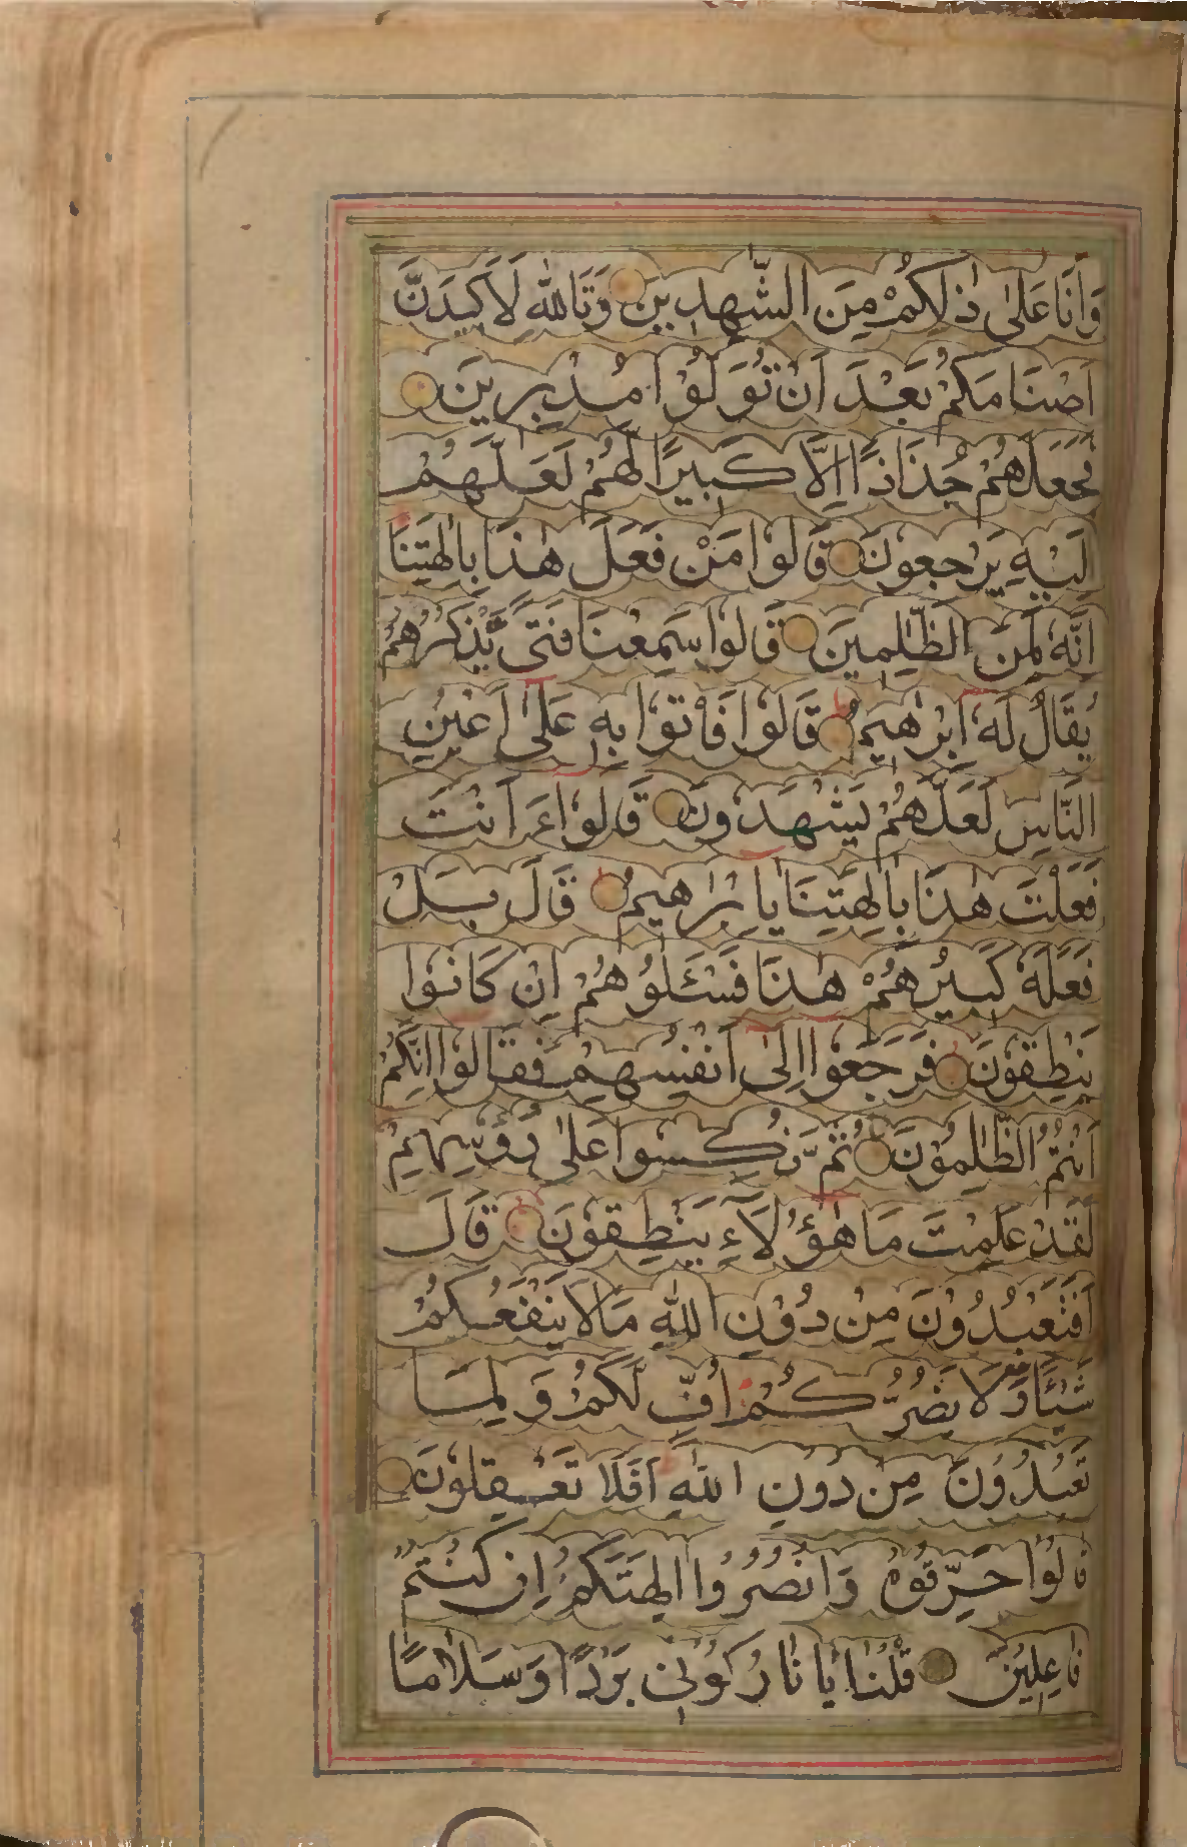 وَاَنَا عَلٰى ذٰلِكُمْ مِنَ الشّٰهِدِينَ وَتَاللّٰهِ لَاَكِيدَنَّ
اَصْنَامَكُمْ بَعْدَ اَنْ تُوَلُّوْا مُدْبِرِينَ
فَجَعَلَهُمْ جُذَاذًا اِلَّا كَبِيرًا لَهُمْ لَعَلَّهُمْ
اِلَيْهِ يَرْجِعُونَ قَالُوْا مَنْ فَعَلَ هٰذَا بِاٰلِهَتِنَا
اِنَّهُ لَمِنَ الظّٰلِمِينَ قَالُوا سَمِعْنَا فَتًى يَّذْكُرُهُمْ
يُقَالُ لَهُ اِبْرٰهِيمُ قَالُوْا فَأْتُوْا بِهِ عَلٰى اَعْيُنِ
النَّاسِ لَعَلَّهُمْ يَشْهَدُونَ قَالُوْا ءَاَنْتَ
فَعَلْتَ هٰذَا بِاٰلِهَتِنَا يٰا اِبْرٰهِيمُ قَالَ بَلْ
فَعَلَهُ كَبِيرُهُمْ هٰذَا فَسْـَٔلُوْهُمْ اِنْ كَانُوْا
يَنْطِقُوْنَ فَرَجَعُوْا اِلٰى اَنْفُسِهِمْ فَقَالُوْا اِنَّكُمْ
اَنْتُمُ الظّٰلِمُوْنَ ثُمَّ نُكِسُوا عَلٰى رُؤُسِهِمْ
لَقَدْ عَلِمْتَ مَا هٰؤُلَآءِ يَنْطِقُوْنَ قَالَ
اَفَتَعْبُدُوْنَ مِنْ دُوْنِ اللّٰهِ مَا لَا يَنْفَعُكُمْ
شَيْئًا وَّلَا يَضُرُّكُمْ اُفٍّ لَّكُمْ وَلِمَا
تَعْبُدُوْنَ مِنْ دُوْنِ اللّٰهِ اَفَلَا تَعْقِلُوْنَ
قَالُوْا حَرِّقُوْهُ وَانْصُرُوْا اٰلِهَتَكُمْ اِنْ كُنْتُمْ
فَاعِلِيْنَ قُلْنَا يَا نَارُ كُوْنِى بَرْدًا وَسَلَامًا